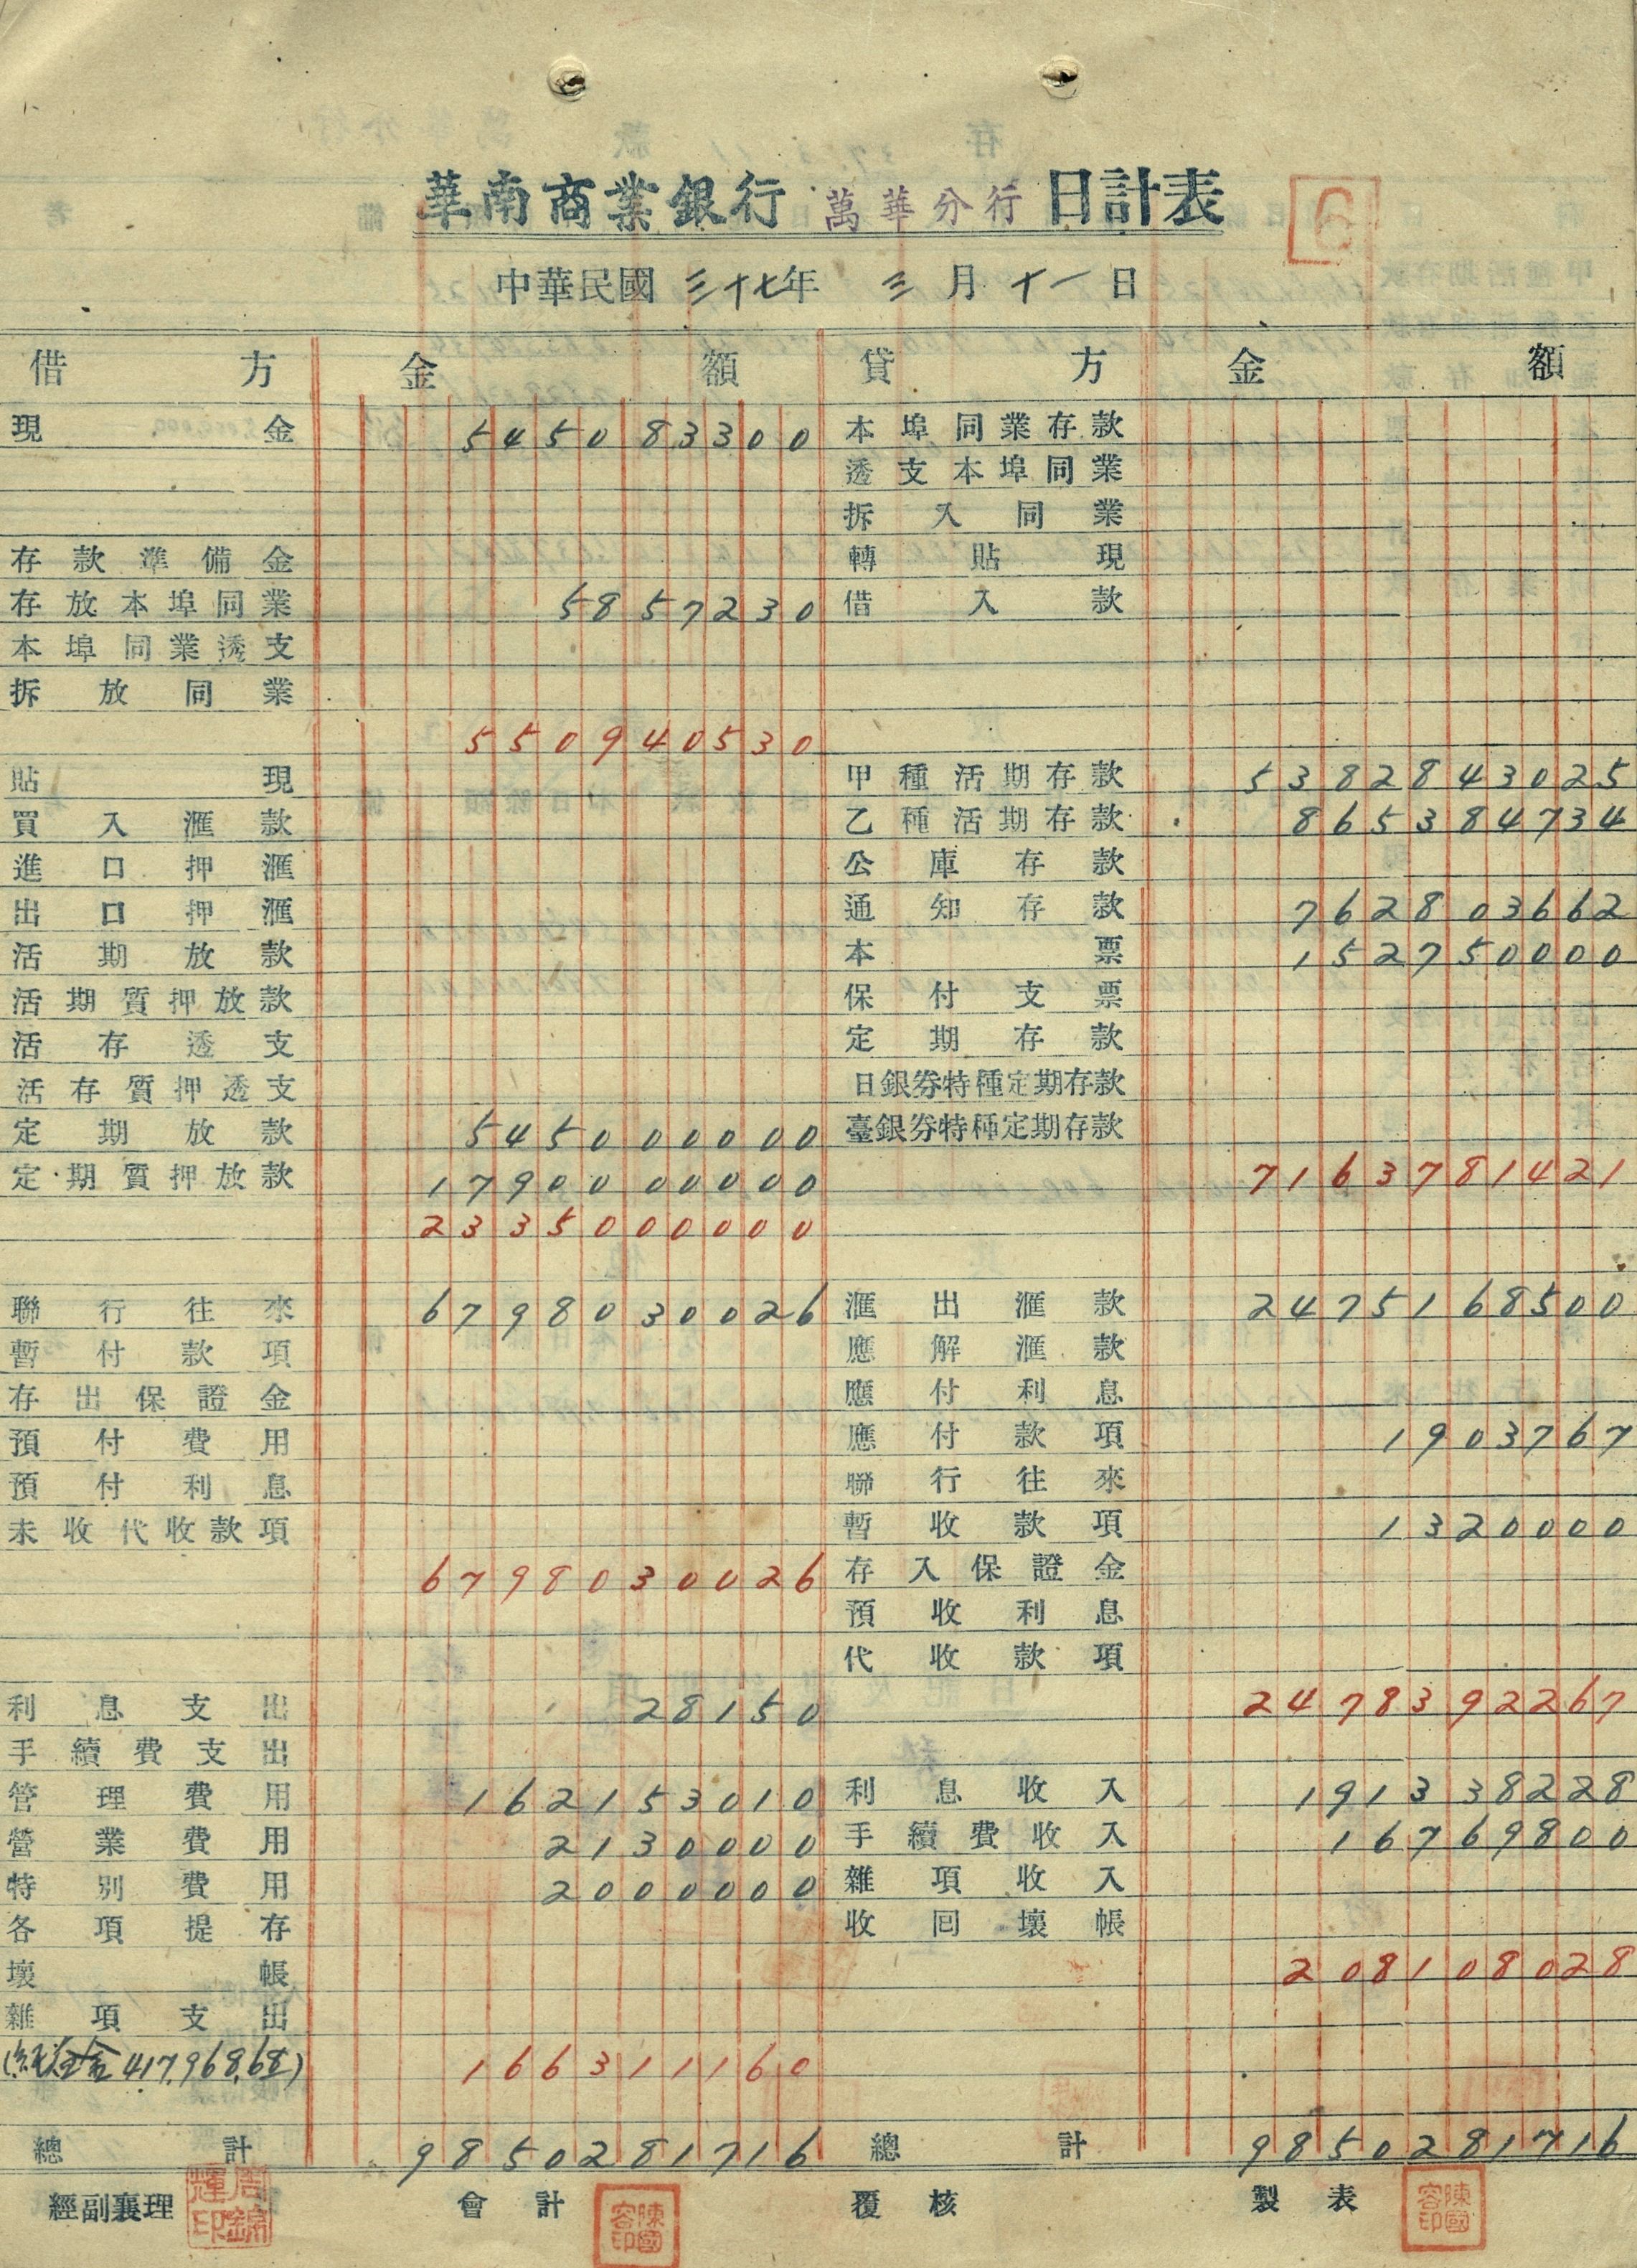 華南商業銀行 萬華分行 日計表
6
中華民國 三十七年 三月十一日
借方 金額 貸方 金額
現金 545083300 本埠同業存款
透支本埠同業
拆入同業
存款準備金 轉貼現
存放本埠同業 5857230 借入款
本埠同業透支
拆放同業
550940530
貼現 甲種活期存款 5382843025
買入滙款 乙種活期存款 865384734
進口押滙 公庫存款
出口押滙 通知存款 762803662
活期放款 本票 152750000
活期質押放款 保付支票
活存透支 定期存款
活存質押透支 日銀券特種定期存款
定期放款 545000000 臺銀券特種定期存款
定期質押放款 1790000000 7163781421
2335000000
聯行往來 6798030026 滙出滙款 2475168500
暫付款項 應解滙款
存出保證金 應付利息
預付費用 應付款項 1903767
預付利息 聯行往來
未收代收款項 暫收款項 1320000
6798030026 存入保證金
預收利息
代收款項
利息支出 28150 2478392267
手續費支出
管理費用 162153010 利息收入 191338228
營業費用 2130000 手續費收入 16769800
特別費用 2000000 雜項收入
各項提存 收回壞帳
壞帳 208108028
雜項支出
166311160
總計 9850281716 總計 9850281716
經副襄理 周錦輝印 會計 陳國容印 覆核 製表 陳國容印